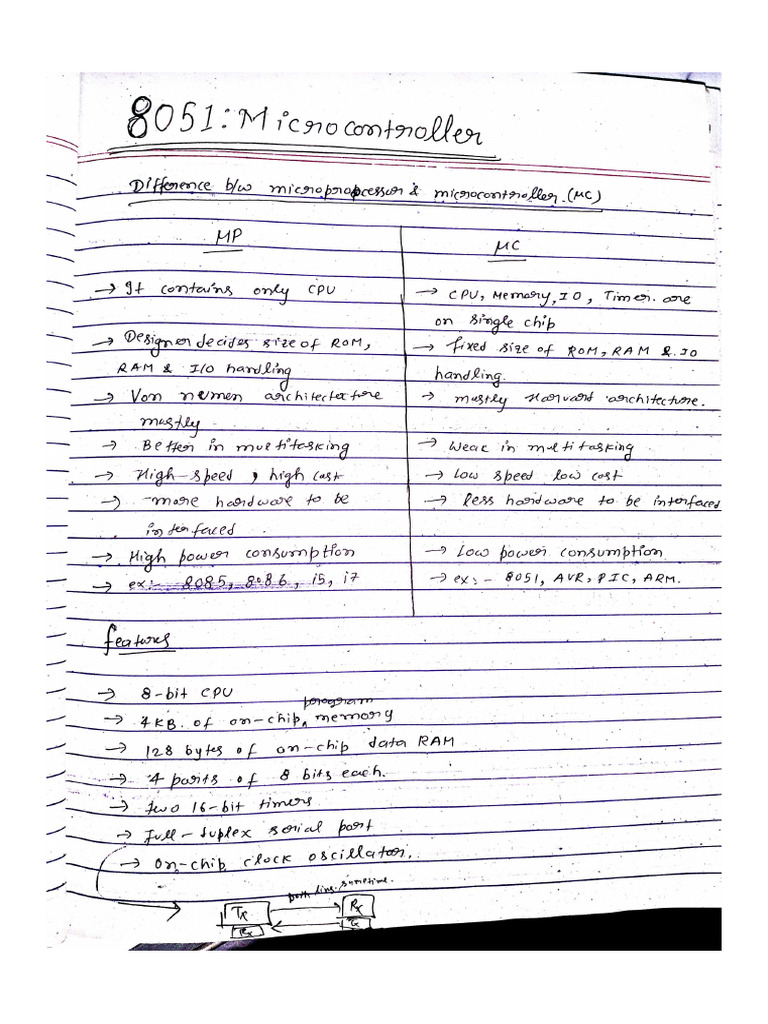 8051: Microcontroller
Difference b/w microprocessor & microcontroller (μC)
μP
μC
→ It contains only CPU
→ CPU, Memory, IO, Timer. are
on single chip
→ Designer decides size of ROM,
RAM & I/O handling
→ fixed size of ROM, RAM & IO
handling.
→ Von neumen architectecture
mostly
→ mostly Harvard architecture.
→ Better in multitasking
→ Weak in multitasking
→ High-speed, high cost
→ Low speed low cost
→ more hardware to be
interfaced.
→ less hardware to be interfaced
→ High power consumption
→ Low power consumption
→ ex:- 8085, 8086, i5, i7
→ ex:- 8051, AVR, PIC, ARM.
features
→ 8-bit CPU
→ 4KB. of on-chip program memory
→ 128 bytes of on-chip data RAM
→ 4 ports of 8 bits each.
→ Two 16-bit timers
→ Full-duplex serial port
→ On-chip clock oscillator.
both
Tx
Rx
Rx
Tx